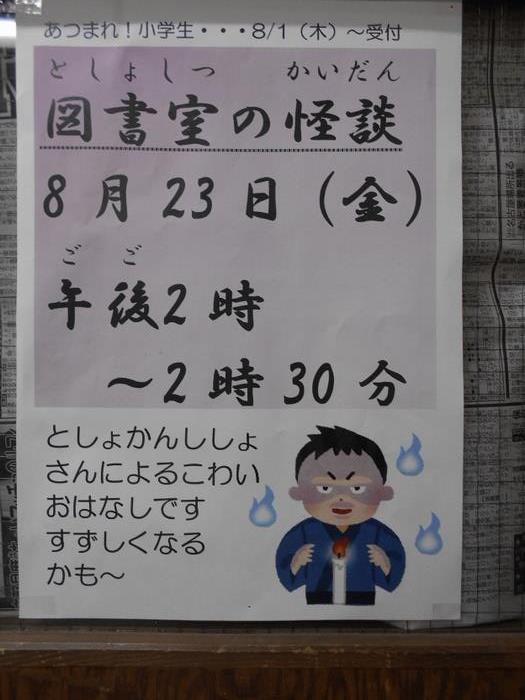 あつまれ！小学生・・・8/1（木）～受付
としょしつ　かいだん
図書室の怪談
8月23日（金）
ごご
午後2時
～2時30分
としょかんししょ
さんによるこわい
おはなしです
すずしくなる
かも～